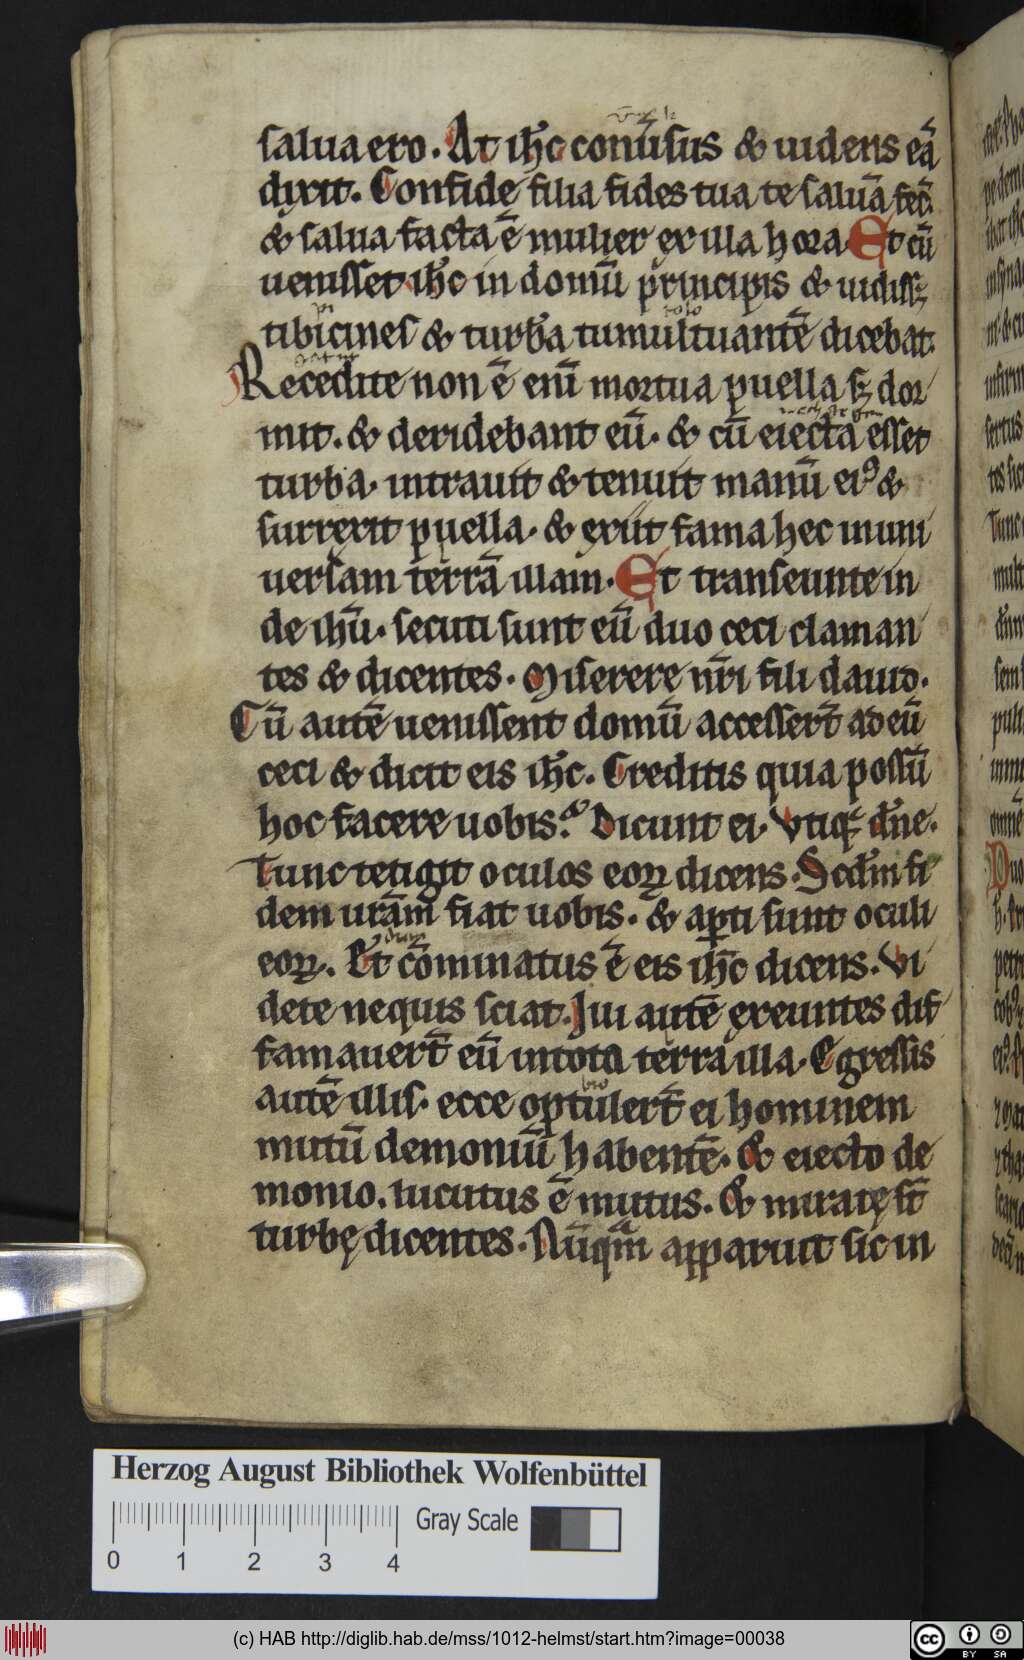 salua ero. At ih̄c conūsus & uidens eā
dixit. Confide filia fides tua te saluā fec̄.
& salua facta ē mulier ex illa hora Et cū
uenisset ih̄c in domū principis & uidiss&
tibicines & turbā tumultuantē dicebat.
Recedite non ē enī mortua puella sꝫ dor
mit. & deridebant eū. & cū eiecta esset
turba. intrauit & tenuit manū eiꝰ &
surrexit puella. & exiit fama hec in uni
uersam terrā illam. Et transeunte in
de ih̄u. secuti sunt eū duo ceci claman
tes & dicentes. Miserere nr̄i fili dauid.
Cū autē uenissent domū accessert̄ ad eū
ceci & dicit eis ih̄c. Creditis quia possū
hoc facere uobis? Dicunt ei. Vtiqꝫ dn̄e.
Tunc tetigit oculos eoꝝ dicens. Scd̄m fi
dem urām fiat uobis. & apti sunt oculi
eoꝝ. Et cōminatus ē eis ih̄c dicens. Vi
dete nequis sciat. Illi autē exeuntes dif
famauert̄ eū in tota terra illa. Egressis
autē illis. ecce optulert̄ ei hominem
mutū demoniū habentē. & eiecto de
monio. lucutus ē mutus. & miratę st̄
turbę dicentes. Nūqm̄ apparuit sic in
Herzog August Bibliothek Wolfenbüttel
Gray Scale
0 1 2 3 4
(c) HAB http://diglib.hab.de/mss/1012-helmst/start.htm?image=00038
cc BY SA